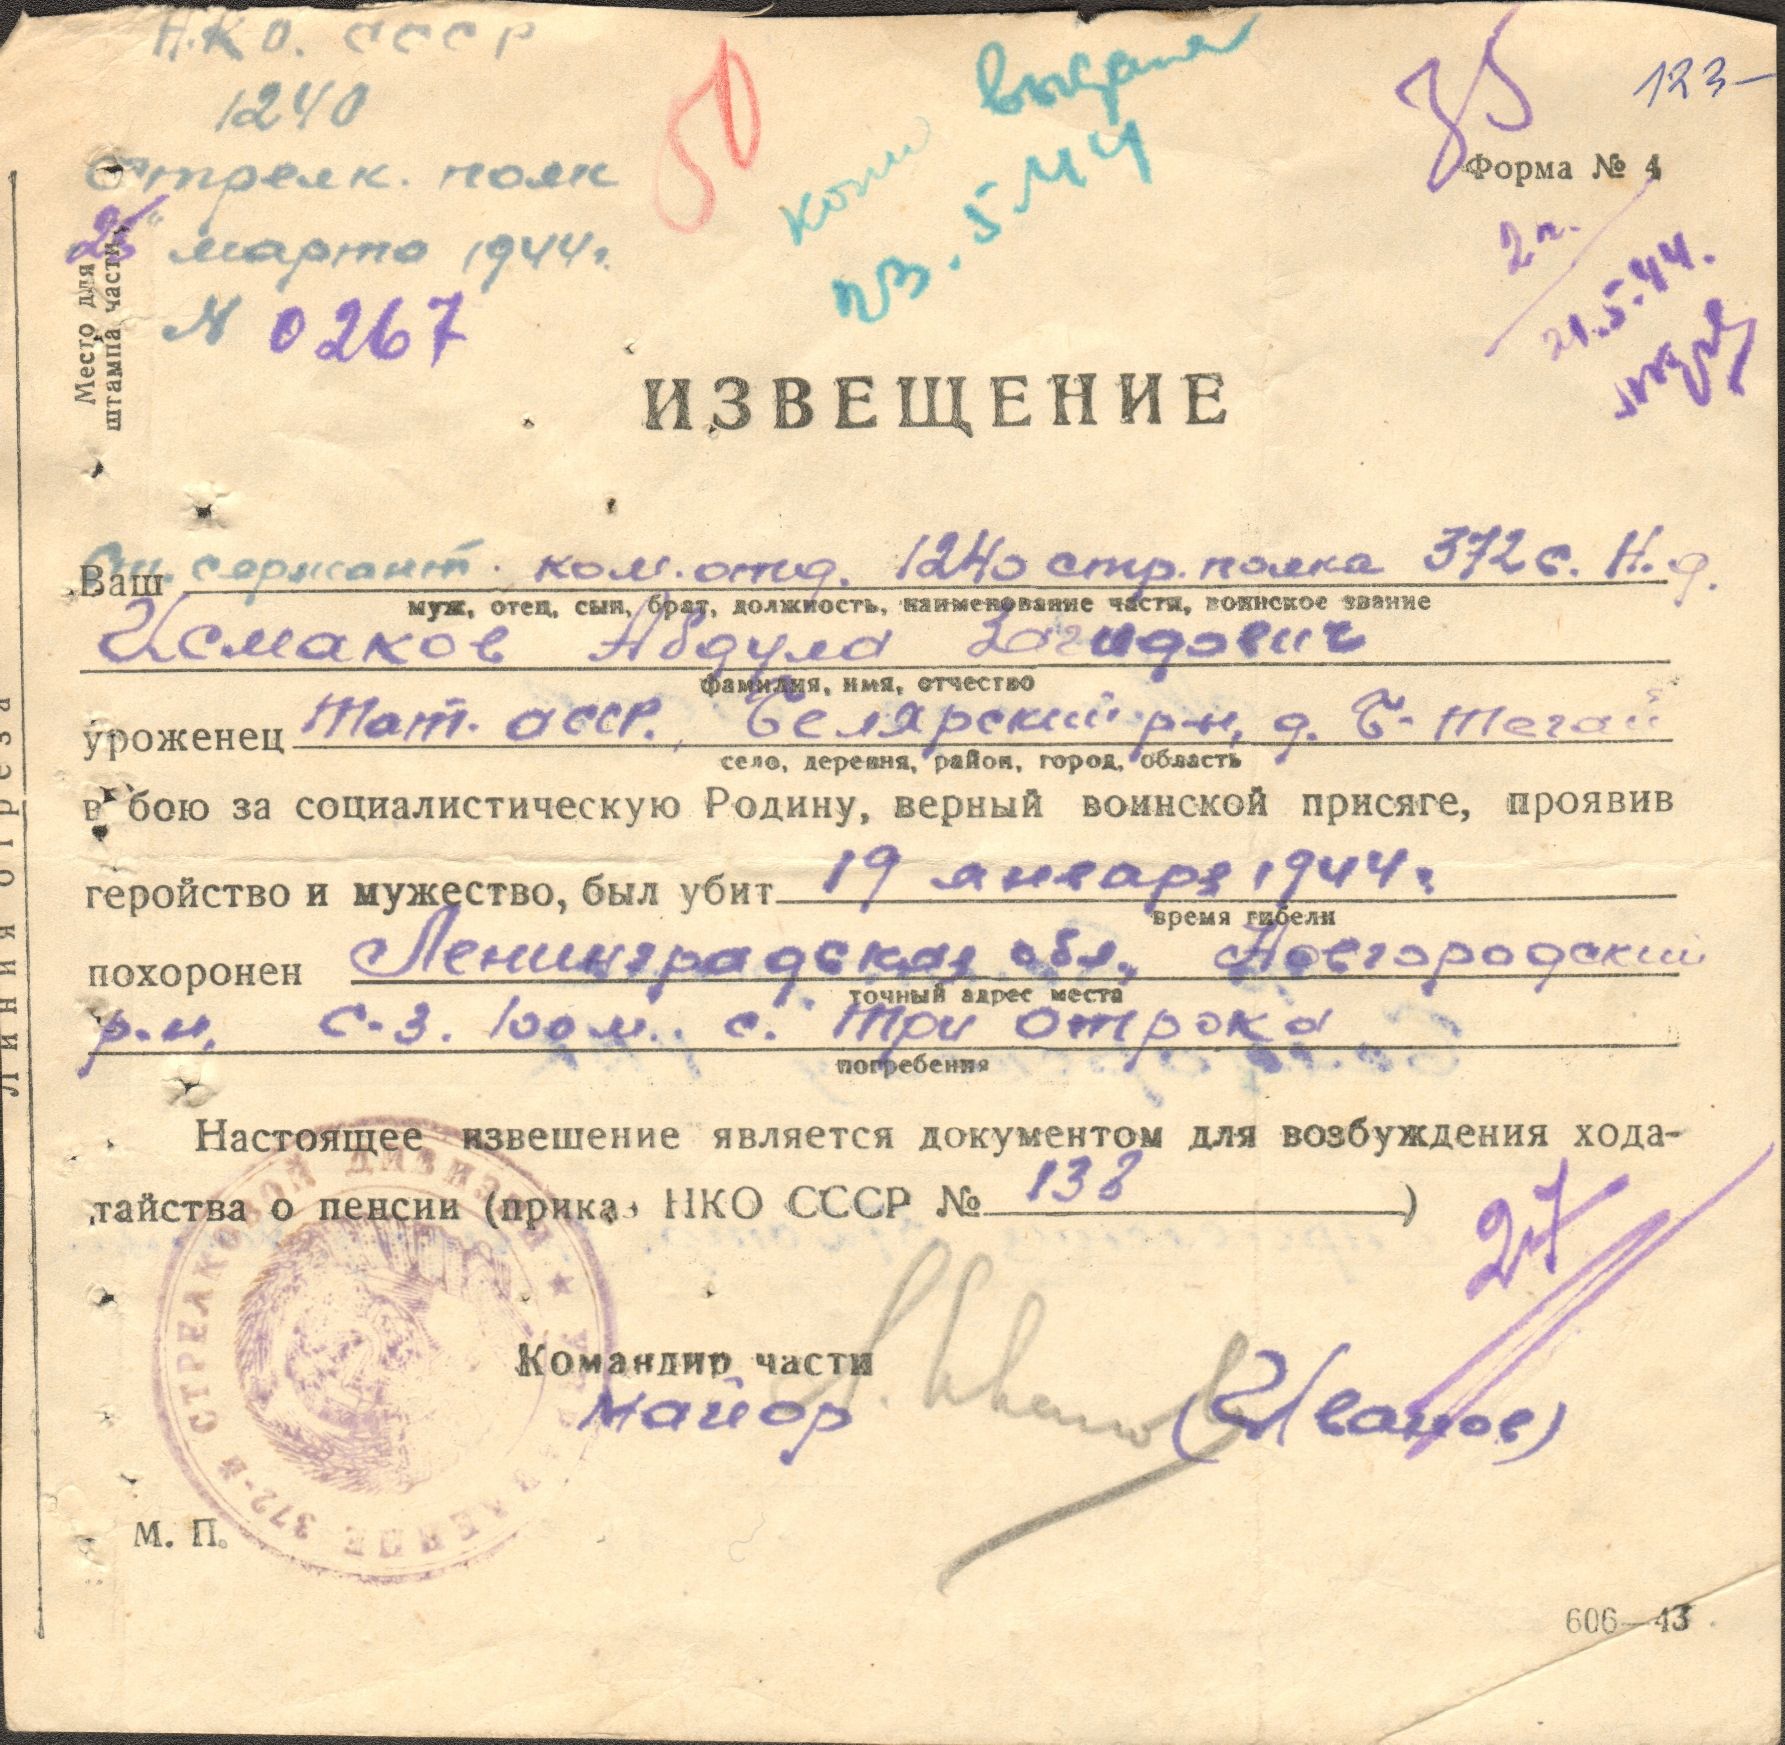 Н.К.О. СССР
1240
Стрелк. полк
25 марта 1944г.
N 0267
Место для
штампа части
50
копия выдана
23.5.44
35
123-
Форма № 4
2 п.
21.5.44.
ИЗВЕЩЕНИЕ
Ваш Ст. сержант. ком. отд. 1240 стр. полка 372 с. Н. д.
муж, отец, сын, брат, должность, наименование части, воинское звание
Исмаков Абдула Загидович
фамилия, имя, отчество
уроженец Тат. АССР., Белярский р-н, д. Б-Тегай
село, деревня, район, город, область
в бою за социалистическую Родину, верный воинской присяге, проявив
геройство и мужество, был убит 19 января 1944г.
время гибели
похоронен Ленинградская обл., Новгородский
точный адрес места
р-н, С-З. 100 м. с. Три Отрока
погребения
Настоящее извешение является документом для возбуждения хода-
тайства о пенсии (приказ НКО СССР № 138 )
27
Командир части
майор (Иванов)
372-Й СТРЕЛКОВОЙ ДИВИЗИИ
М. П.
606—43
Линия отреза